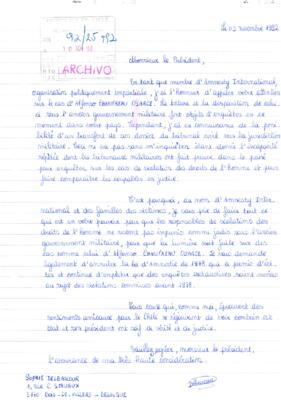 92/25792
10 NOV 92
ARCHIVO
le 02 novembre 1992
Monsieur le Président,
En tant que membre d'Amnesty International,
organisation politiquement impartiale, j'ai l'honneur d'appeler votre attention
sur le cas d'Alfonso CHANFREAU OYARCE. La torture et la disparition de celui-
ci sous l'ancien gouvernement militaire font objets d'enquêtes en ce
moment dans votre pays. Cependant, j'ai eu connaissance de la possi-
bilité d'un transfert de ces dossiers du tribunal civil vers la juridiction
militaire. Ceci ne va pas sans m'inquiéter étant donné l'incapacité
répétée dont les tribunaux militaires ont fait preuve dans le passé
pour enquêter sur les cas de violation des droits de l'Homme et pour
faire comparaître les coupables en justice.
C'est pourquoi, au nom d'Amnesty Inter-
national et des familles des victimes, je vous prie de faire tout ce
qui est en votre pouvoir pour que les responsables de violations des
droits de l'Homme ne restent pas impunis comme jadis sous l'ancien
gouvernement militaire, pour que la lumière soit faite sur des
cas comme celui d'Alfonso CHANFREAU OYARCE. Je vous demande
également d'annuler la loi d'amnistie de 1978 qui a permis d'évi-
ter et continue d'empêcher que des enquêtes exhaustives soient menées
au sujet des violations commises avant 1978.
Tous ceux qui, comme moi, éprouvent des
sentiments amicaux pour le Chili se réjouiraient de voir combien cet
état et son président est soif de vérité et de justice.
Veuillez agréer, Monsieur le président,
l'assurance de ma très haute considération.
SOPHIE DELBAUCHE
1, RUE
DION-LE-VAL - BELGIQUE